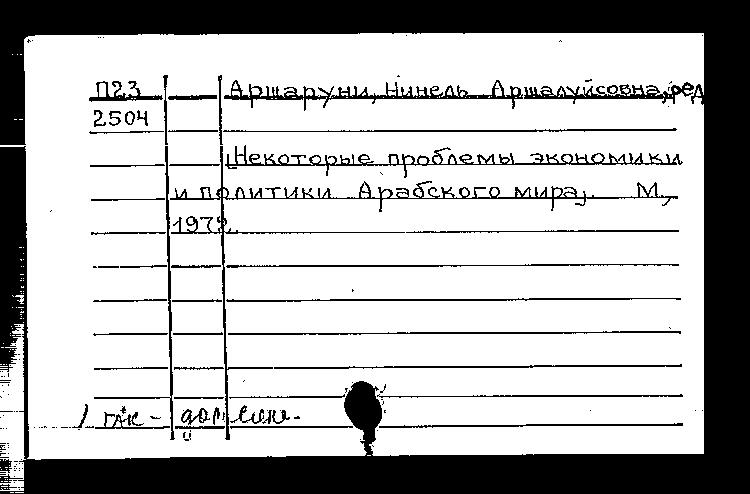 П23 Аршаруни, Нинель Аршалуйсовна, ред
2504
[Некоторые проблемы экономики
и политики Арабского мира]. М.,
1972.